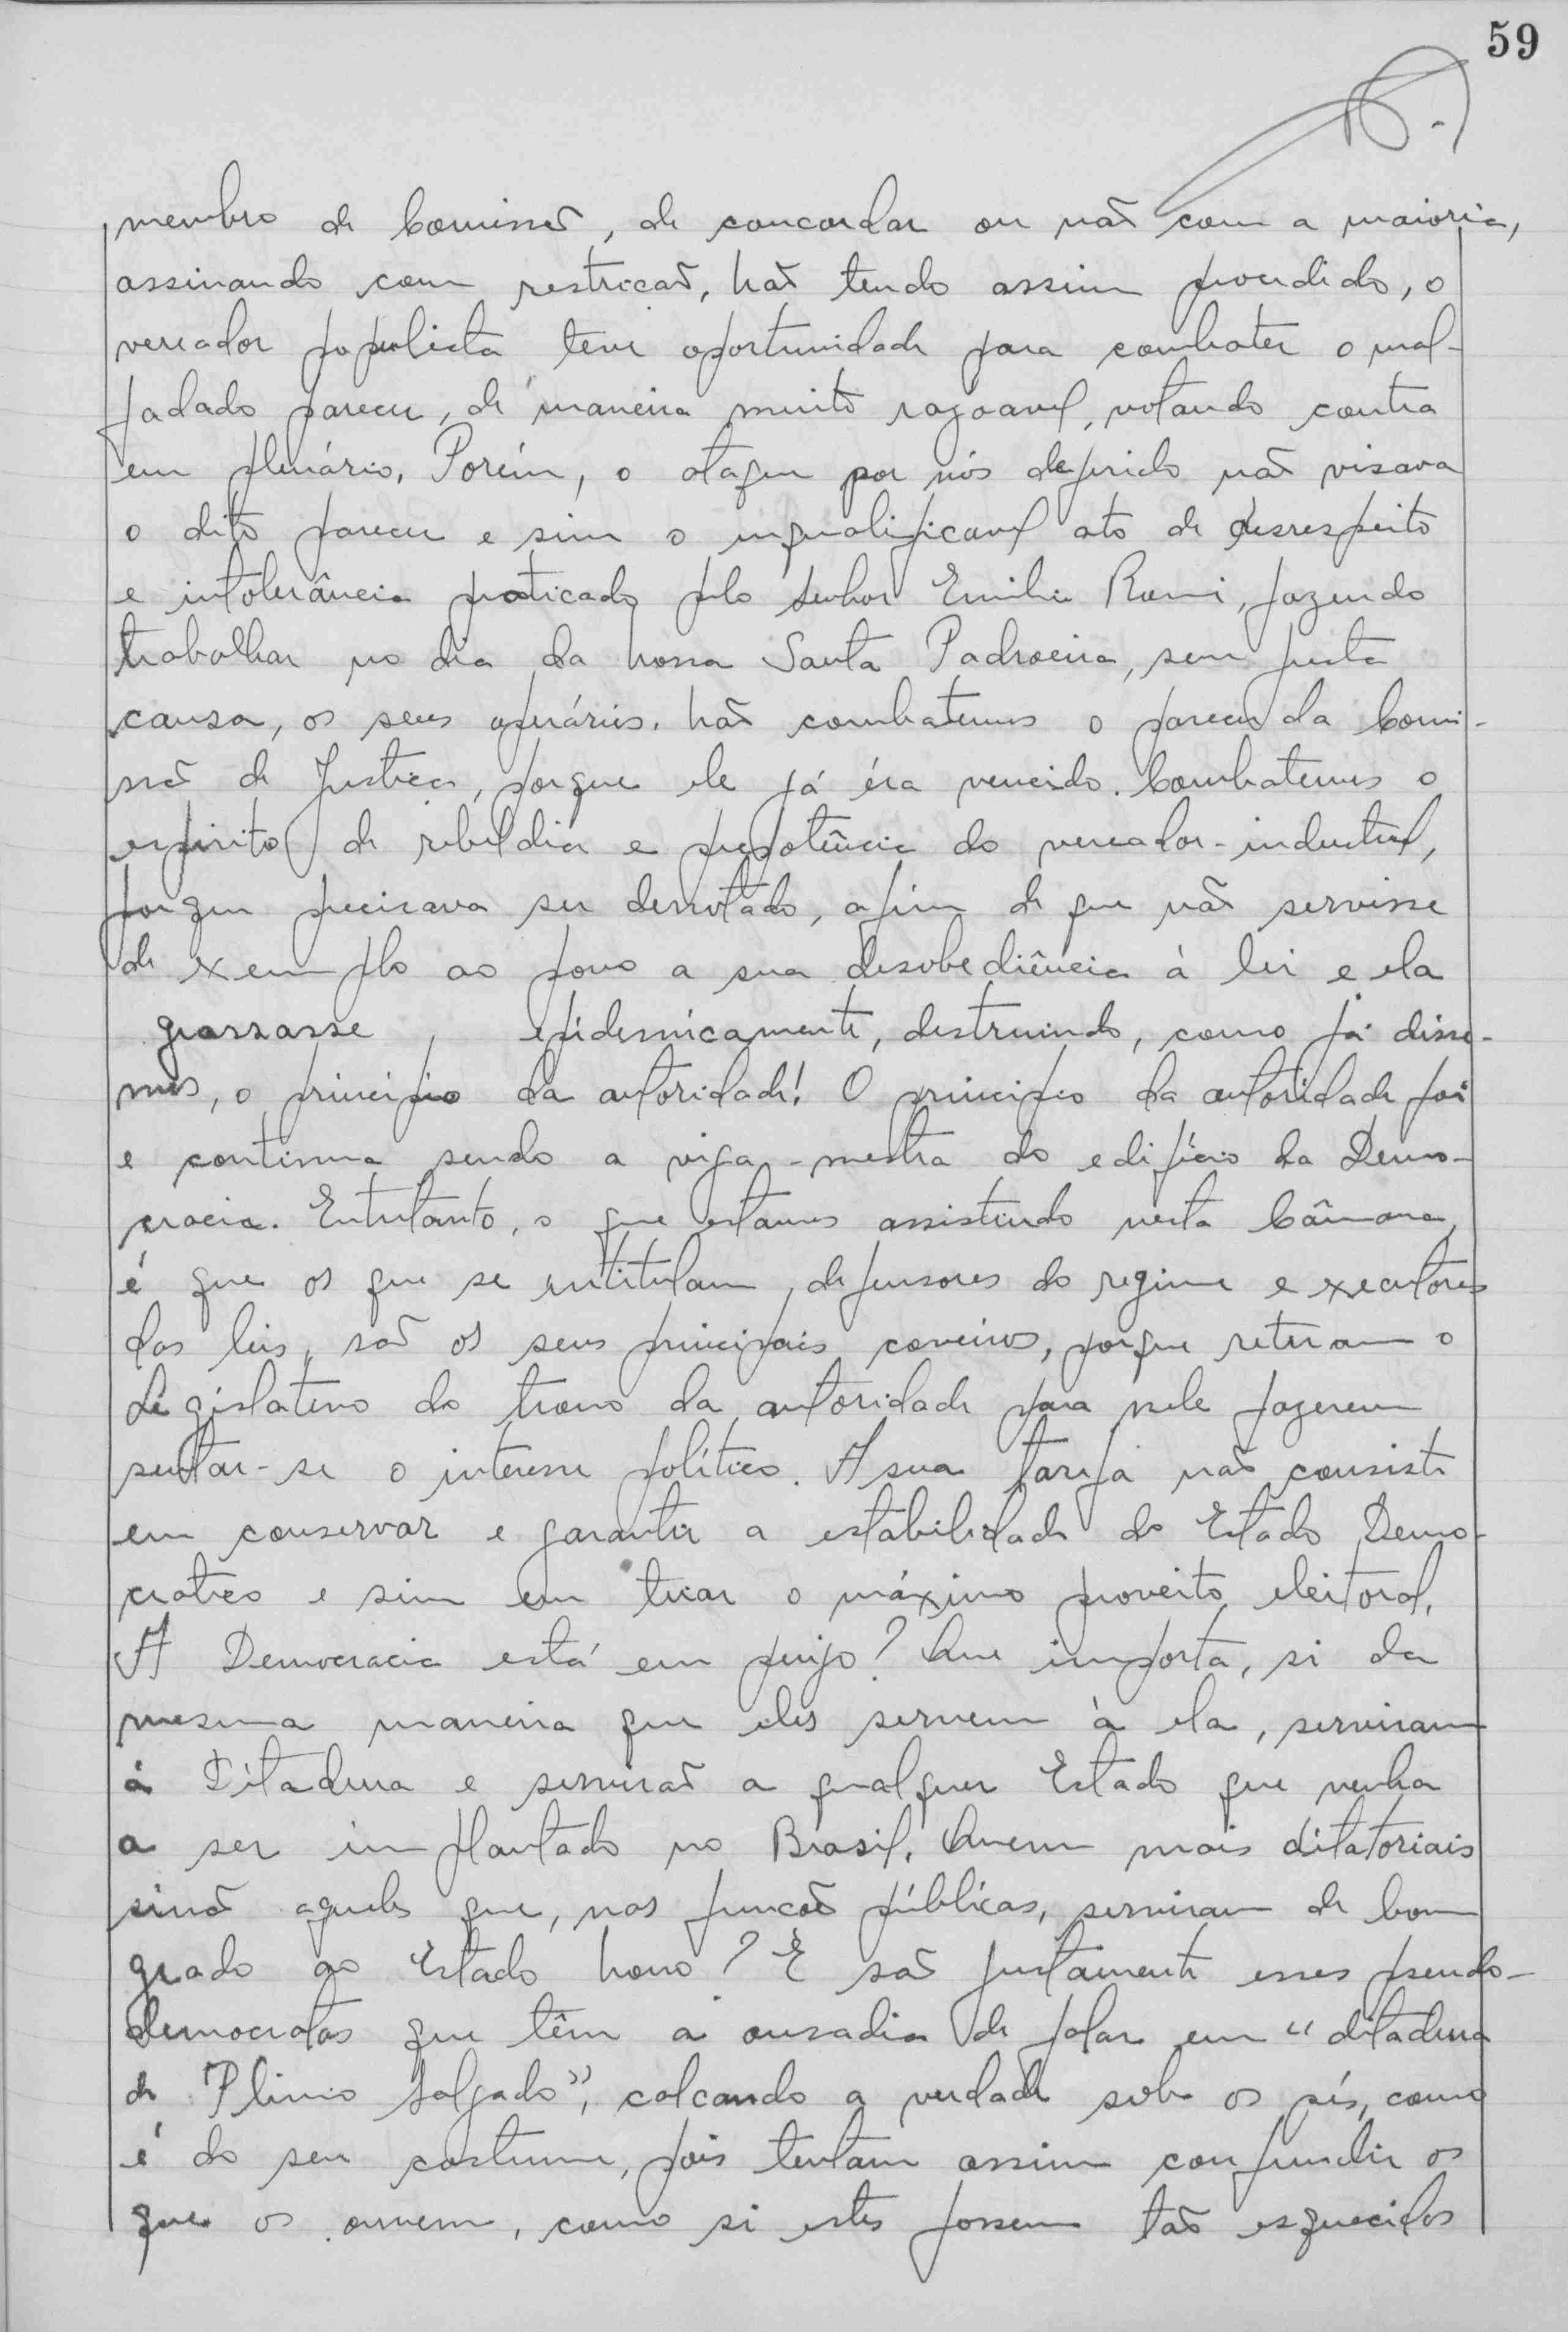 59
membro de Comissão, de concordar ou não com a maioria,
assinando com restricão. Não tendo assim procedido, o
vereador populista teve oportunidade para combater o mal-
fadado parecer, de maneira muito razoavel, votando contra
em plenário. Porém, o ataque por nós deferido não visava
o dito parecer e sim o inqualificavel ato de desrespeito
e intolerância praticado pelo Senhor Emilio Romi, fazendo
trabalhar no dia da nossa Santa Padroeira, sem justa
causa, os seus operários. Não combatemos o parecer da Comi-
ssão de Justiça, porque ele já éra vencido. Combatemos o
espirito de rebeldia e prepotência do vereador-industrial,
porque precisava ser derrotado, afim de que não servisse
de exemplo ao povo a sua desobediência à lei e ela
grassasse, epidemicamente, destruindo, como já disse-
mos, o princípio da autoridade! O principio da autoridade foi
e continua sendo a viga-mestra do edifício da Demo-
cracia. Entretanto, o que estamos assistindo nesta Câmara,
é que os que se intitulam defensores do regime e executores
das leis, são os seus principais coveiros, porque retiram o
Legislativo do trono da autoridade para nele fazerem
sentar-se o interesse político. A sua tarefa não consiste
em conservar e garantir a estabilidade do Estado Demo-
cratico e sim em tirar o máximo proveito eleitoral.
A Democracia está em perigo? Que importa, si da
mesma maneira que eles servem à ela, serviram
á Ditadura e servirão a qualquer Estado que venha
a ser implantado no Brasil. Quem mais ditatoriais
sinão aqueles que, nas funcões públicas, serviram de bom
grado ao Estado Novo? E são justamente esses pseudo-
democratas que têm a ousadia de falar em "ditadura
de Plinio Salgado", calcando a verdade sob os pés, como
é do seu costume, pois tentam assim confundir os
que os ouvem, como si estes fossem tão esquecidos